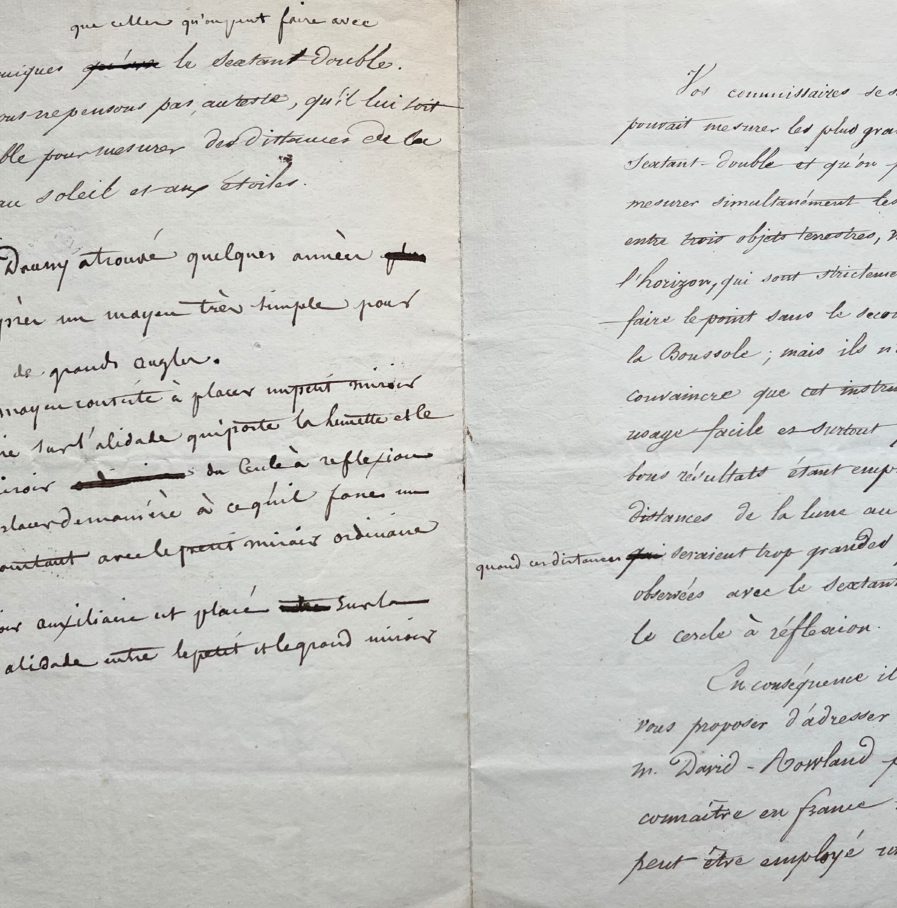 que celles qu'on peut faire avec
niques le sextant double.
ous ne pensons pas, au reste, qu'il lui soit
ble pour mesurer des distances de la
au soleil et aux étoiles.
Daussy a trouvé quelques années
un moyen très simple pour
de grands angles.
moyen consiste à placer un petit miroir
re sur l'alidade qui porte la lunette et le
iroir du cercle à reflexion
placer de manière à ce qu'il fasse un
avec le petit miroir ordinaire
oir auxiliaire est placé sur la
alidade entre le petit et le grand miroir
Vos commissaires se s
pouvait mesurer les plus gra
sextant-double et qu'on p
mesurer simultanément les
entre trois objets terrestres, v
l'horizon, qui sont stricteme
faire le point sans le seco
la Boussole ; mais ils n
convaincre que cet instru
usage facile et surtout p
bons résultats étant emp
distances de la lune au
quand ces distances seraient trop grandes
observées avec le sextant
le cercle à réflexion.
En conséquence il
vous proposer d'adresser
m. David-Rowland p
connaître en france
peut être employé